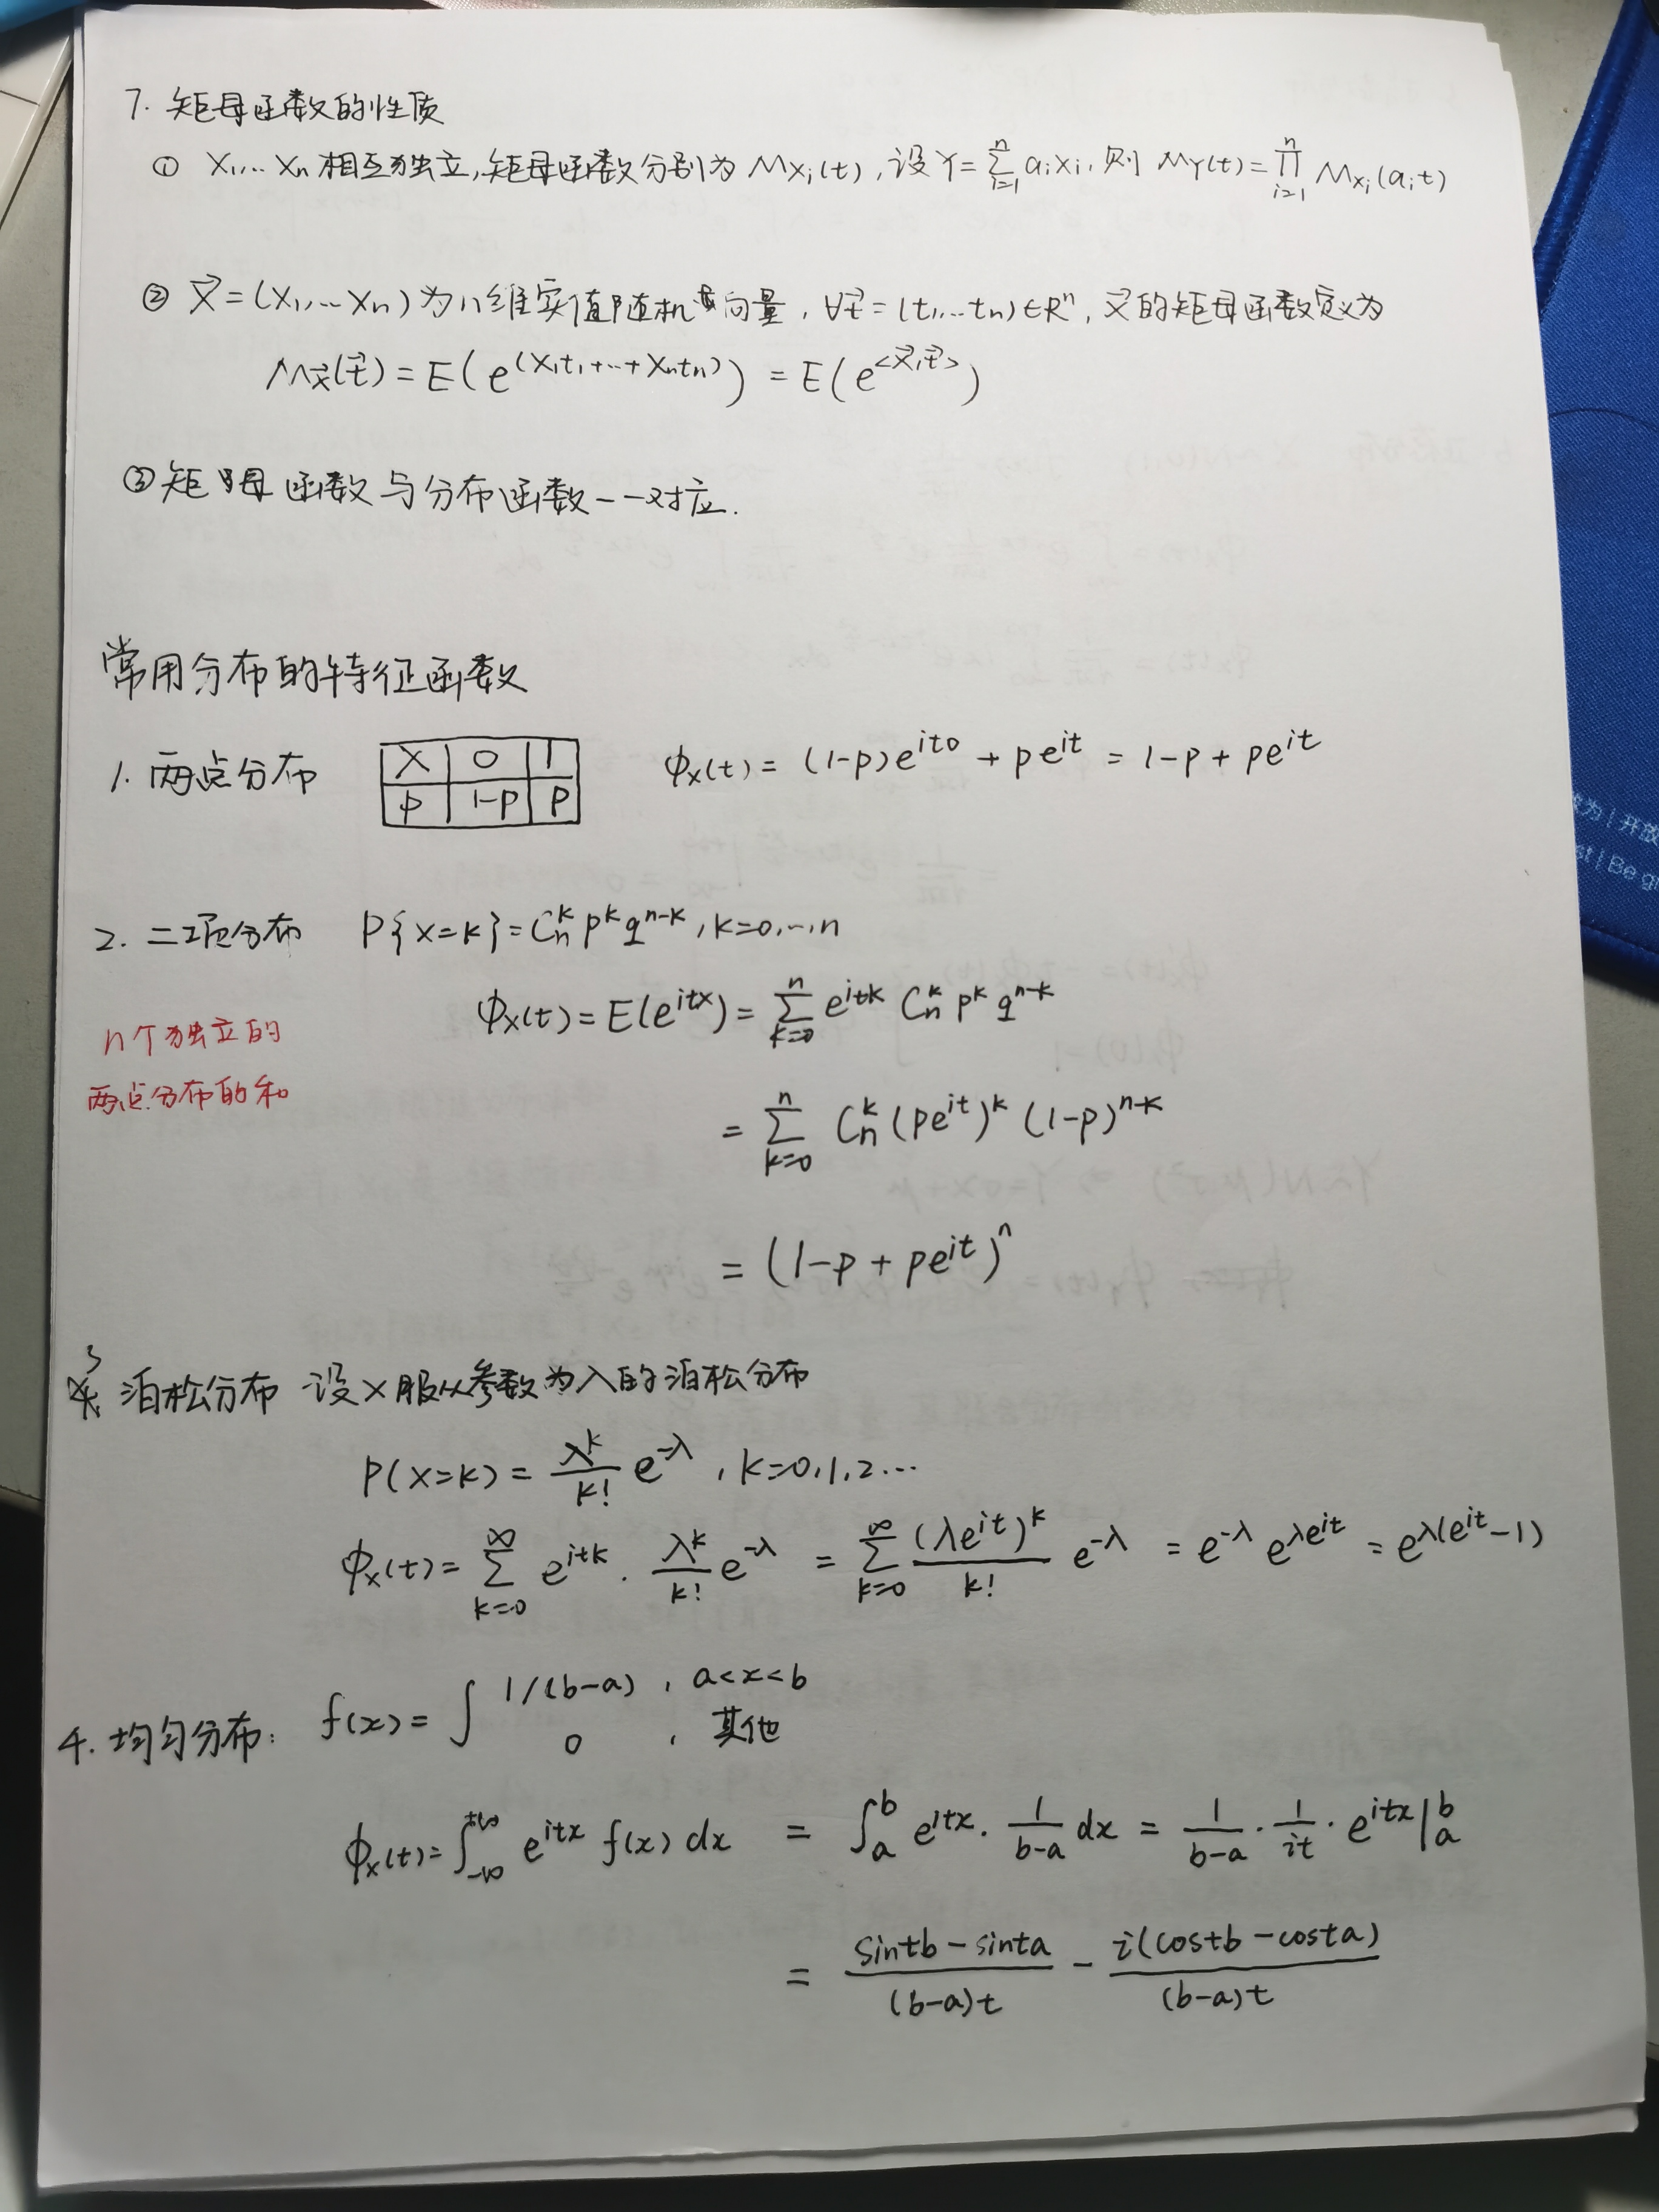 7. 矩母函数的性质
① X₁,… Xn 相互独立,矩母函数分别为 M_{Xi}(t), 设 Y=∑_{i=1}^{n} aᵢXᵢ, 则 M_Y(t)=∏_{i=1}^{n} M_{Xi}(aᵢt)
② X⃗=(X₁,… Xn) 为 n 维实值随机向量, ∀t⃗=(t₁,… tn)∈Rⁿ, X⃗ 的矩母函数定义为
M_{X⃗}(t⃗) = E(e^{(X₁t₁+…+Xntn)}) = E(e^{<X⃗,t⃗>})
③ 矩母函数与分布函数一一对应.
常用分布的特征函数
1. 两点分布 X 0 1 φ_X(t) = (1-p)e^{it0} + pe^{it} = 1-p + pe^{it}
P 1-P P
2. 二项分布 P{X=k}=C_n^k p^k q^{n-k}, k=0,…,n
φ_X(t)=E(e^{itX})=∑_{k=0}^{n} e^{itk} C_n^k p^k q^{n-k}
n个独立的
两点分布的和
= ∑_{k=0}^{n} C_n^k (pe^{it})^k (1-p)^{n-k}
= (1-p + pe^{it})^n
3 泊松分布 设 X 服从参数为 λ 的泊松分布
P(X=k) = \frac{λ^k}{k!} e^{-λ}, k=0,1,2…
φ_X(t)=∑_{k=0}^{∞} e^{itk} · \frac{λ^k}{k!} e^{-λ} = ∑_{k=0}^{∞} \frac{(λe^{it})^k}{k!} e^{-λ} = e^{-λ} e^{λe^{it}} = e^{λ(e^{it}-1)}
4. 均匀分布: f(x)= { 1/(b-a), a<x<b
0, 其他
φ_X(t)=∫_{-∞}^{+∞} e^{itx} f(x) dx = ∫_a^b e^{itx} · \frac{1}{b-a} dx = \frac{1}{b-a} · \frac{1}{it} · e^{itx}|_a^b
= \frac{sintb - sinta}{(b-a)t} - \frac{i(costb - costa)}{(b-a)t}
开放
Be